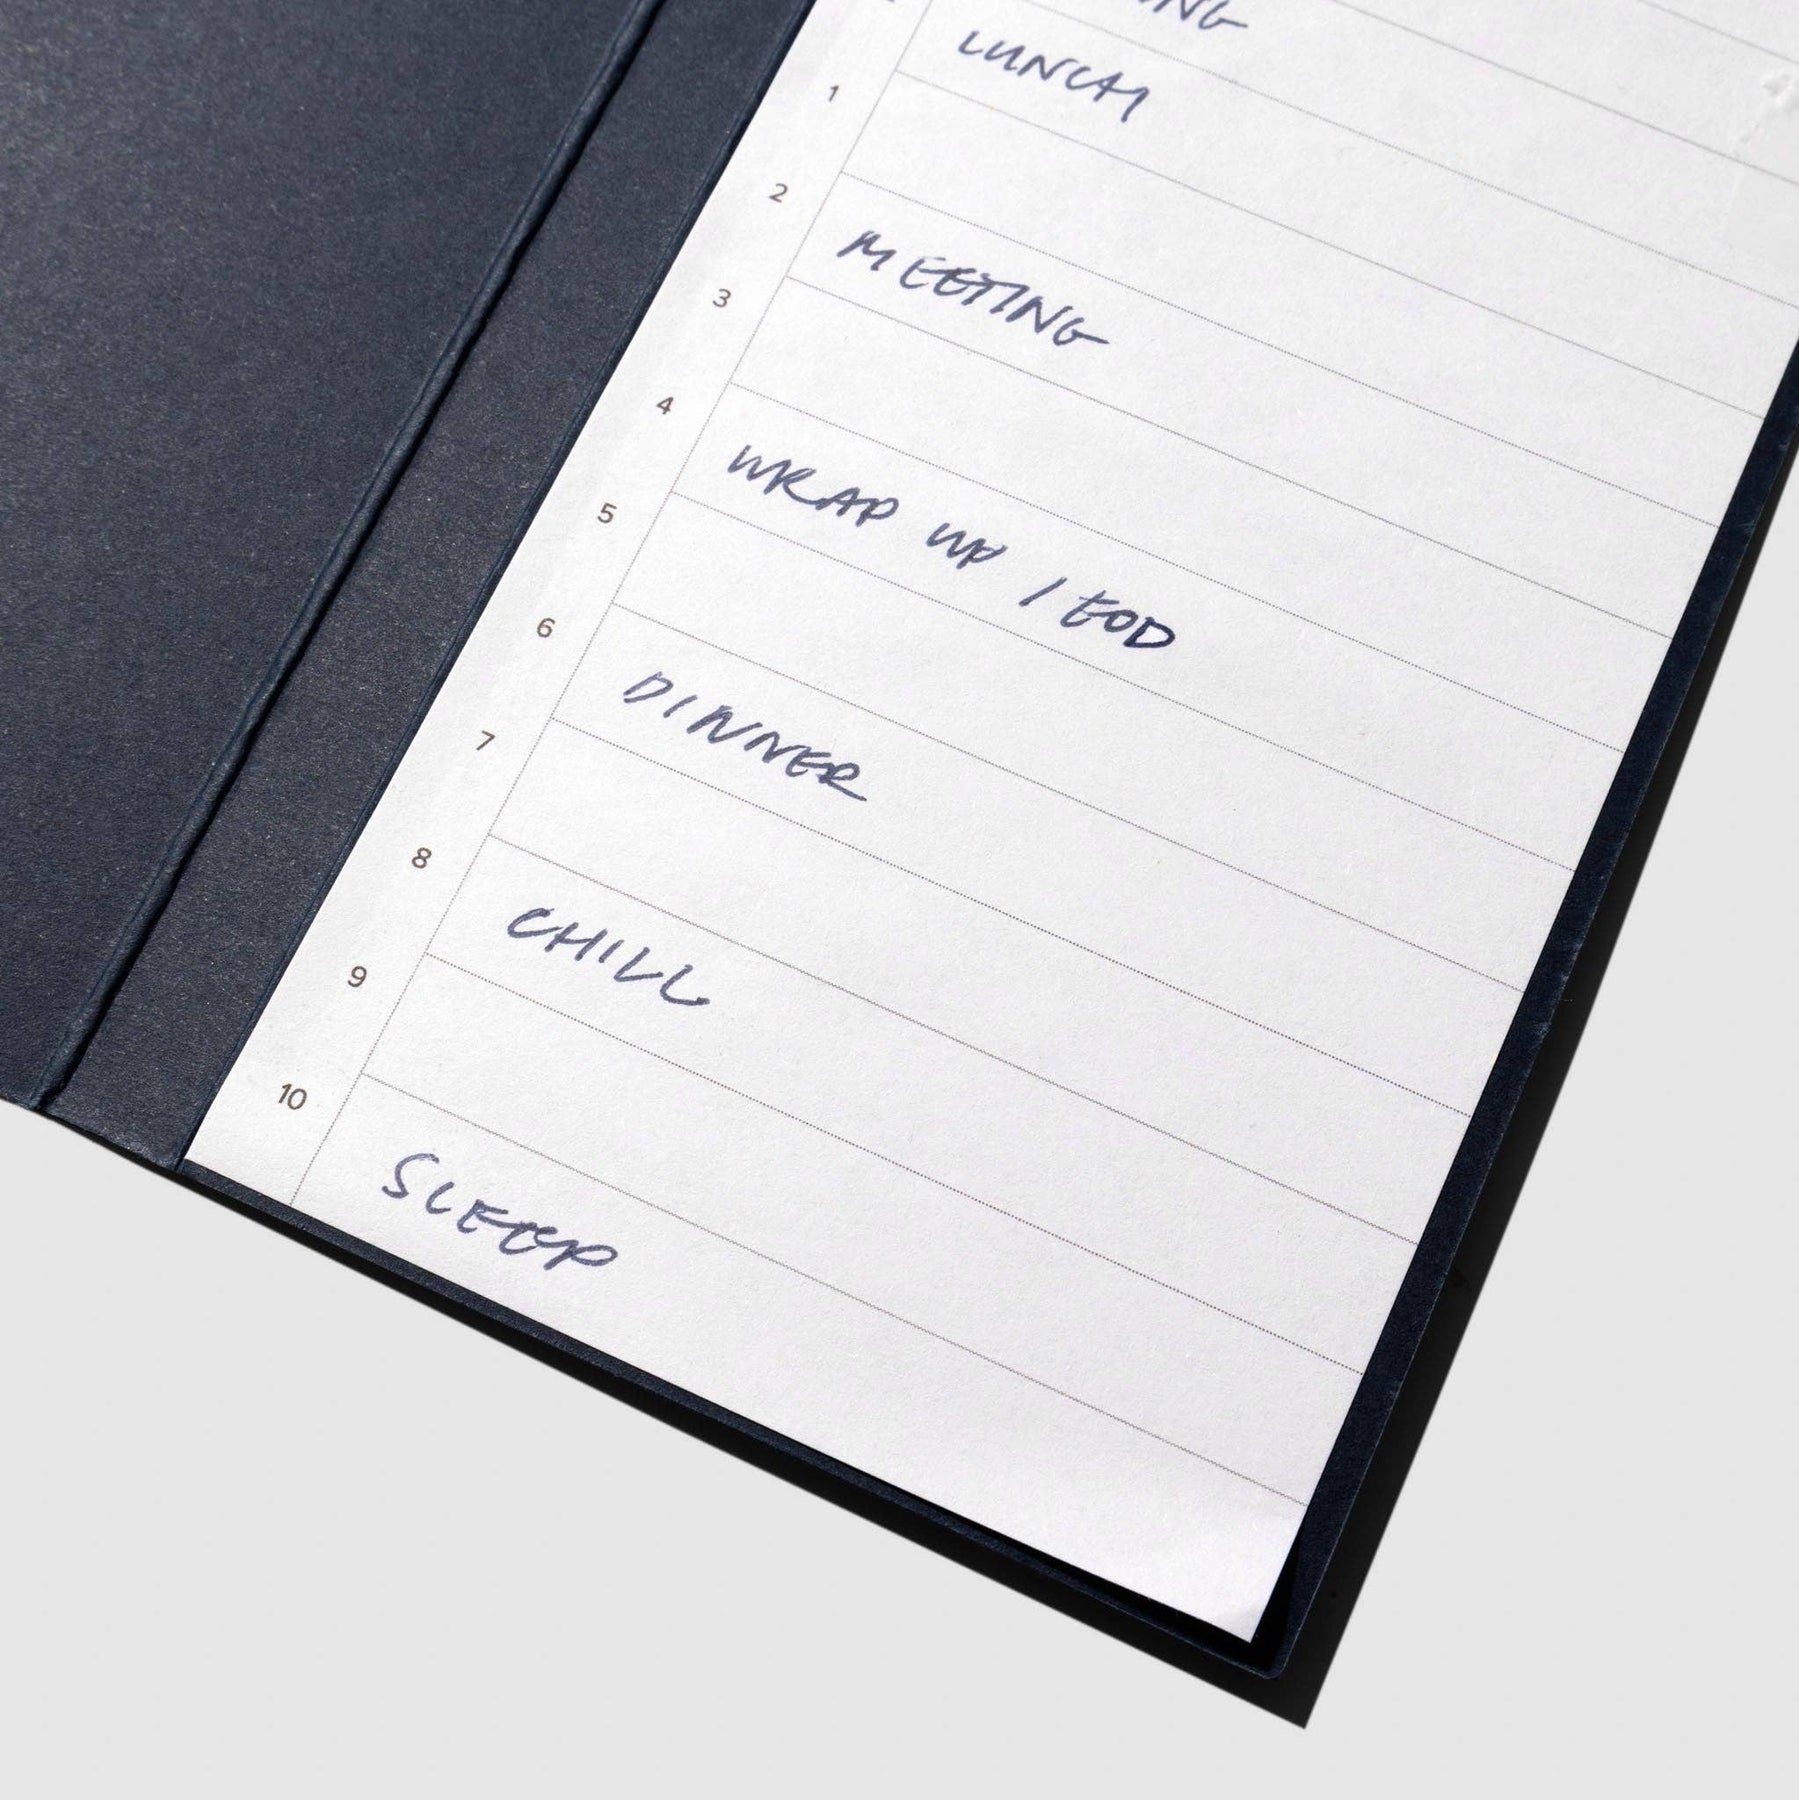 LUNCH
1
2 MEETING
3
4 WRAP UP / EOD
5
6 DINNER
7
8 CHILL
9
10 SLEEP